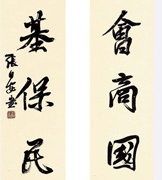 會商國
基保民